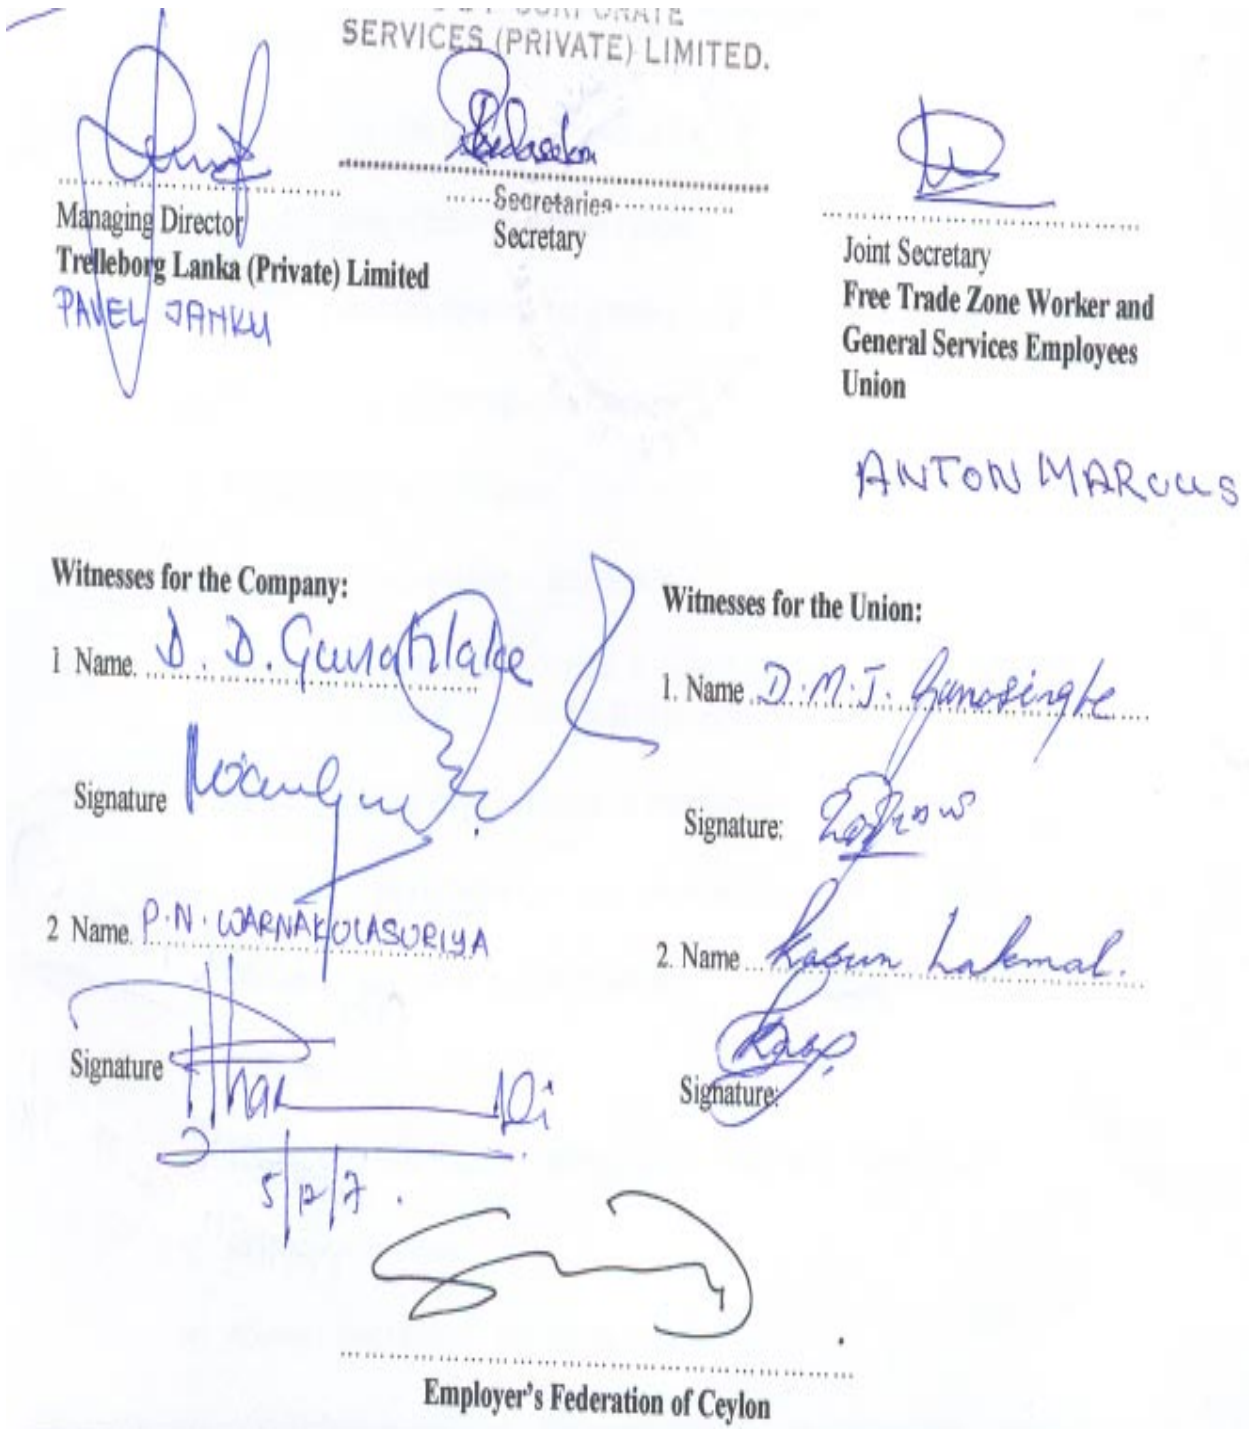 CORPORATE
SERVICES (PRIVATE) LIMITED.
Managing Director
Trelleborg Lanka (Private) Limited
PAVEL JANKU
Secretaries
Secretary
Joint Secretary
Free Trade Zone Worker and
General Services Employees
Union
ANTON MARCUS
Witnesses for the Company:
1 Name. D. D. Gunatilake
Signature
2 Name. P.N. WARNAKULASURIYA
Signature
5/12/7.
Witnesses for the Union:
1. Name D.M.J. Gunasinghe
Signature:
2. Name Kasun Lakmal.
Signature:
Employer's Federation of Ceylon